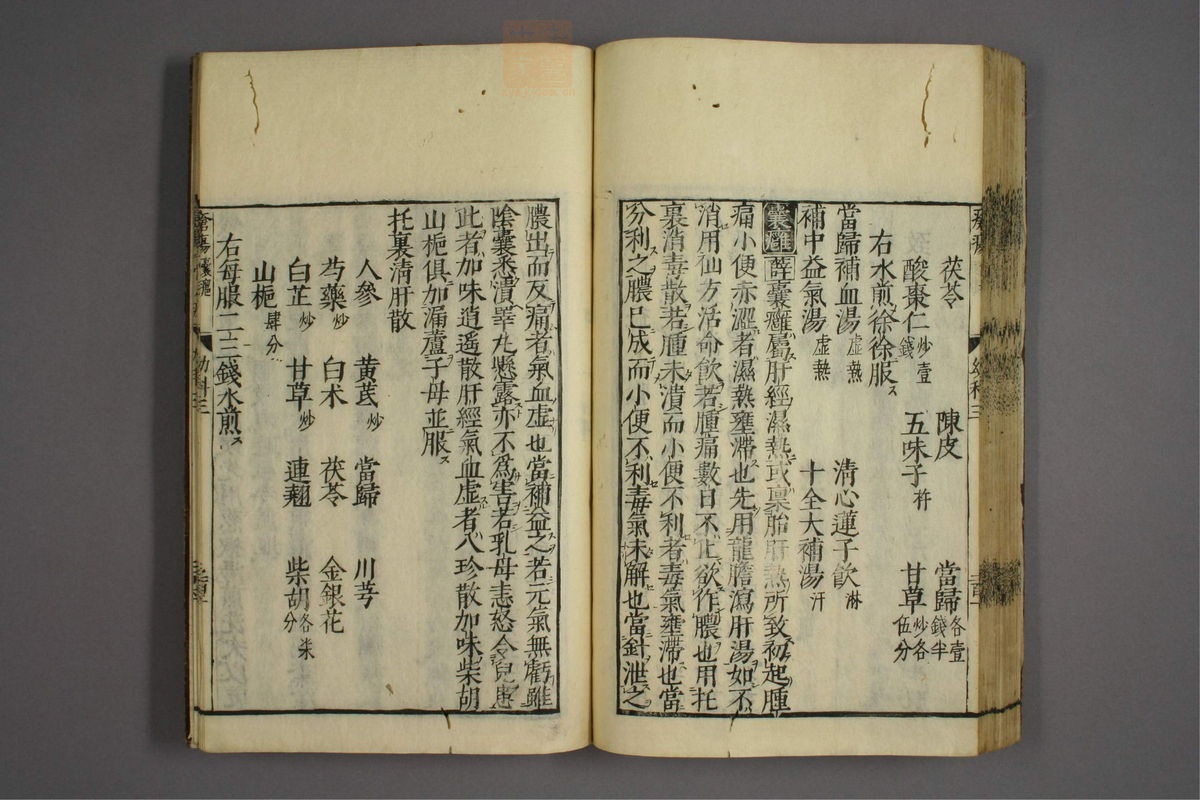 茯苓 陳皮 當歸各壹錢半
酸棗仁炒壹錢 五味子杵 甘草炒各伍分
右水煎徐徐服ス
當歸補血湯虛熱 清心蓮子飲淋
補中益氣湯虛熱 十全大補湯汗
囊癰 薛囊癰屬肝經濕熱或稟胎肝熱所致初起腫
痛小便赤澀者濕熱壅滯也先用龍膽瀉肝湯如不
消用仙方活命飲若腫痛數日不止欲作膿也用托
裏消毒散若腫未潰而小便不利者毒氣壅滯也當
分利之膿已成而小便不利毒氣未解也當針泄之
膿出而反痛者氣血虛也當補益之若元氣無虧雖
陰囊悉潰睪丸懸露亦不為害若乳母恚怒令兒患
此者加味逍遙散肝經氣血虛者八珍散加味柴胡
山梔俱加漏蘆子母並服ス
托裏清肝散
人參 黃芪炒 當歸 川芎
芍藥炒 白朮 茯苓 金銀花
白芷炒 甘草炒 連翹 柴胡各柒分
山梔肆分
右每服二三錢水煎ス
幼科三